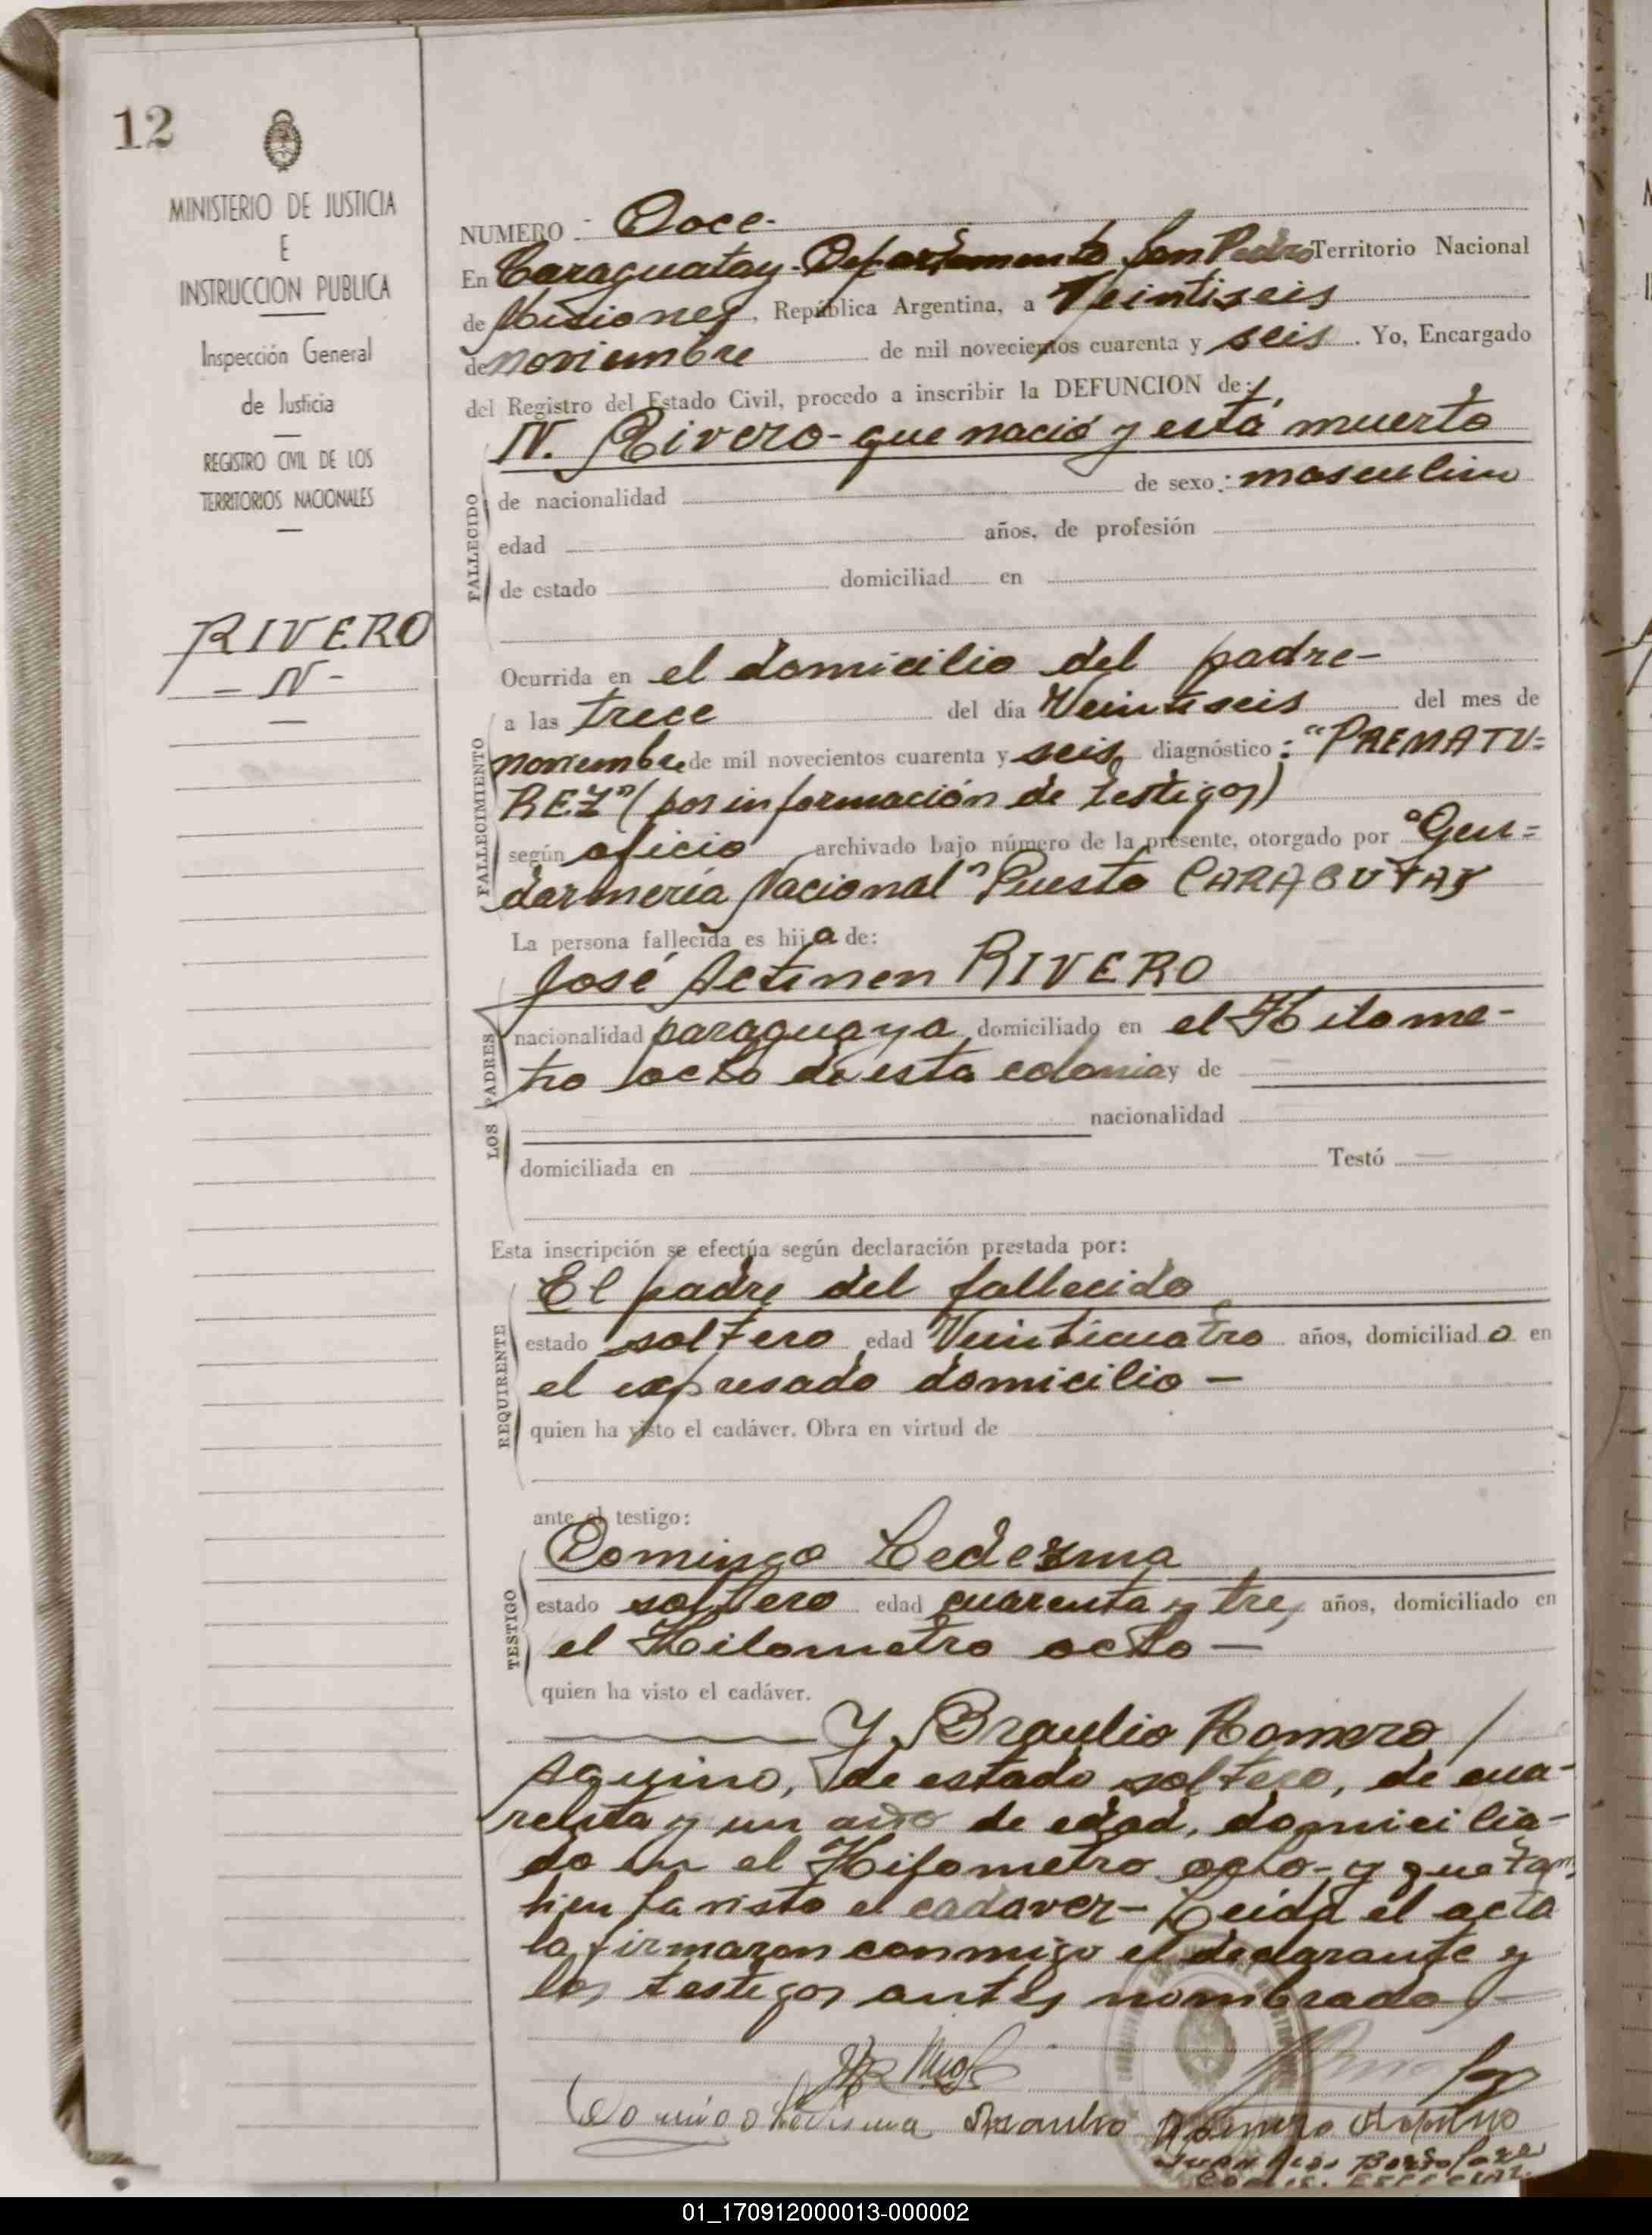 12
MINISTERIO DE JUSTICIA
E
INSTRUCCION PUBLICA
Inspección General
de Justicia
REGISTRO CIVIL DE LOS
TERRITORIOS NACIONALES
RIVERO
- N -
NUMERO :- Doce-
En Caraguatay- Departamento San Pedro Territorio Nacional
de Misiones, República Argentina, a Veintiseis
de noviembre de mil novecientos cuarenta y seis. Yo, Encargado
del Registro del Estado Civil, procedo a inscribir la DEFUNCION de:
N. Rivero- que nació y está muerto
FALLECIDO
de nacionalidad de sexo: masculino
edad años, de profesión
de estado domiciliad en
Ocurrida en el domicilio del padre-
FALLECIMIENTO
a las trece del día Veintiseis del mes de
noviembre de mil novecientos cuarenta y seis, diagnóstico: "PREMATU=
REZ" (por información de testigos)
según oficio archivado bajo número de la presente, otorgado por "Gen=
darmería Nacional" Puesto CARAGUTAY
La persona fallecida es hijo de:
José RIVERO
LOS PADRES
nacionalidad paraguaya domiciliado en el Kilome-
tro ocho de esta colonia y de
nacionalidad
domiciliada en Testó
Esta inscripción se efectúa según declaración prestada por:
El padre del fallecido
REQUIRENTE
estado soltero edad Veinticuatro años, domiciliado en
el expresado domicilio -
quien ha visto el cadáver. Obra en virtud de
ante el testigo:
Domingo Ledezma
TESTIGO
estado soltero edad cuarenta y tres años, domiciliado en
el Kilometro ocho -
quien ha visto el cadáver.
Y Braulio Romero /
Aquino, de estado soltero, de cua-
renta y un año de edad, domicilia-
do en el Kilometro ocho- y que tam
bien ha visto el cadaver- Leida el acta
la firmaron conmigo el declarante y
los testigos antes nombrados-
Domingo Ledesma Braulio Romero Aquino
01_170912000013-000002